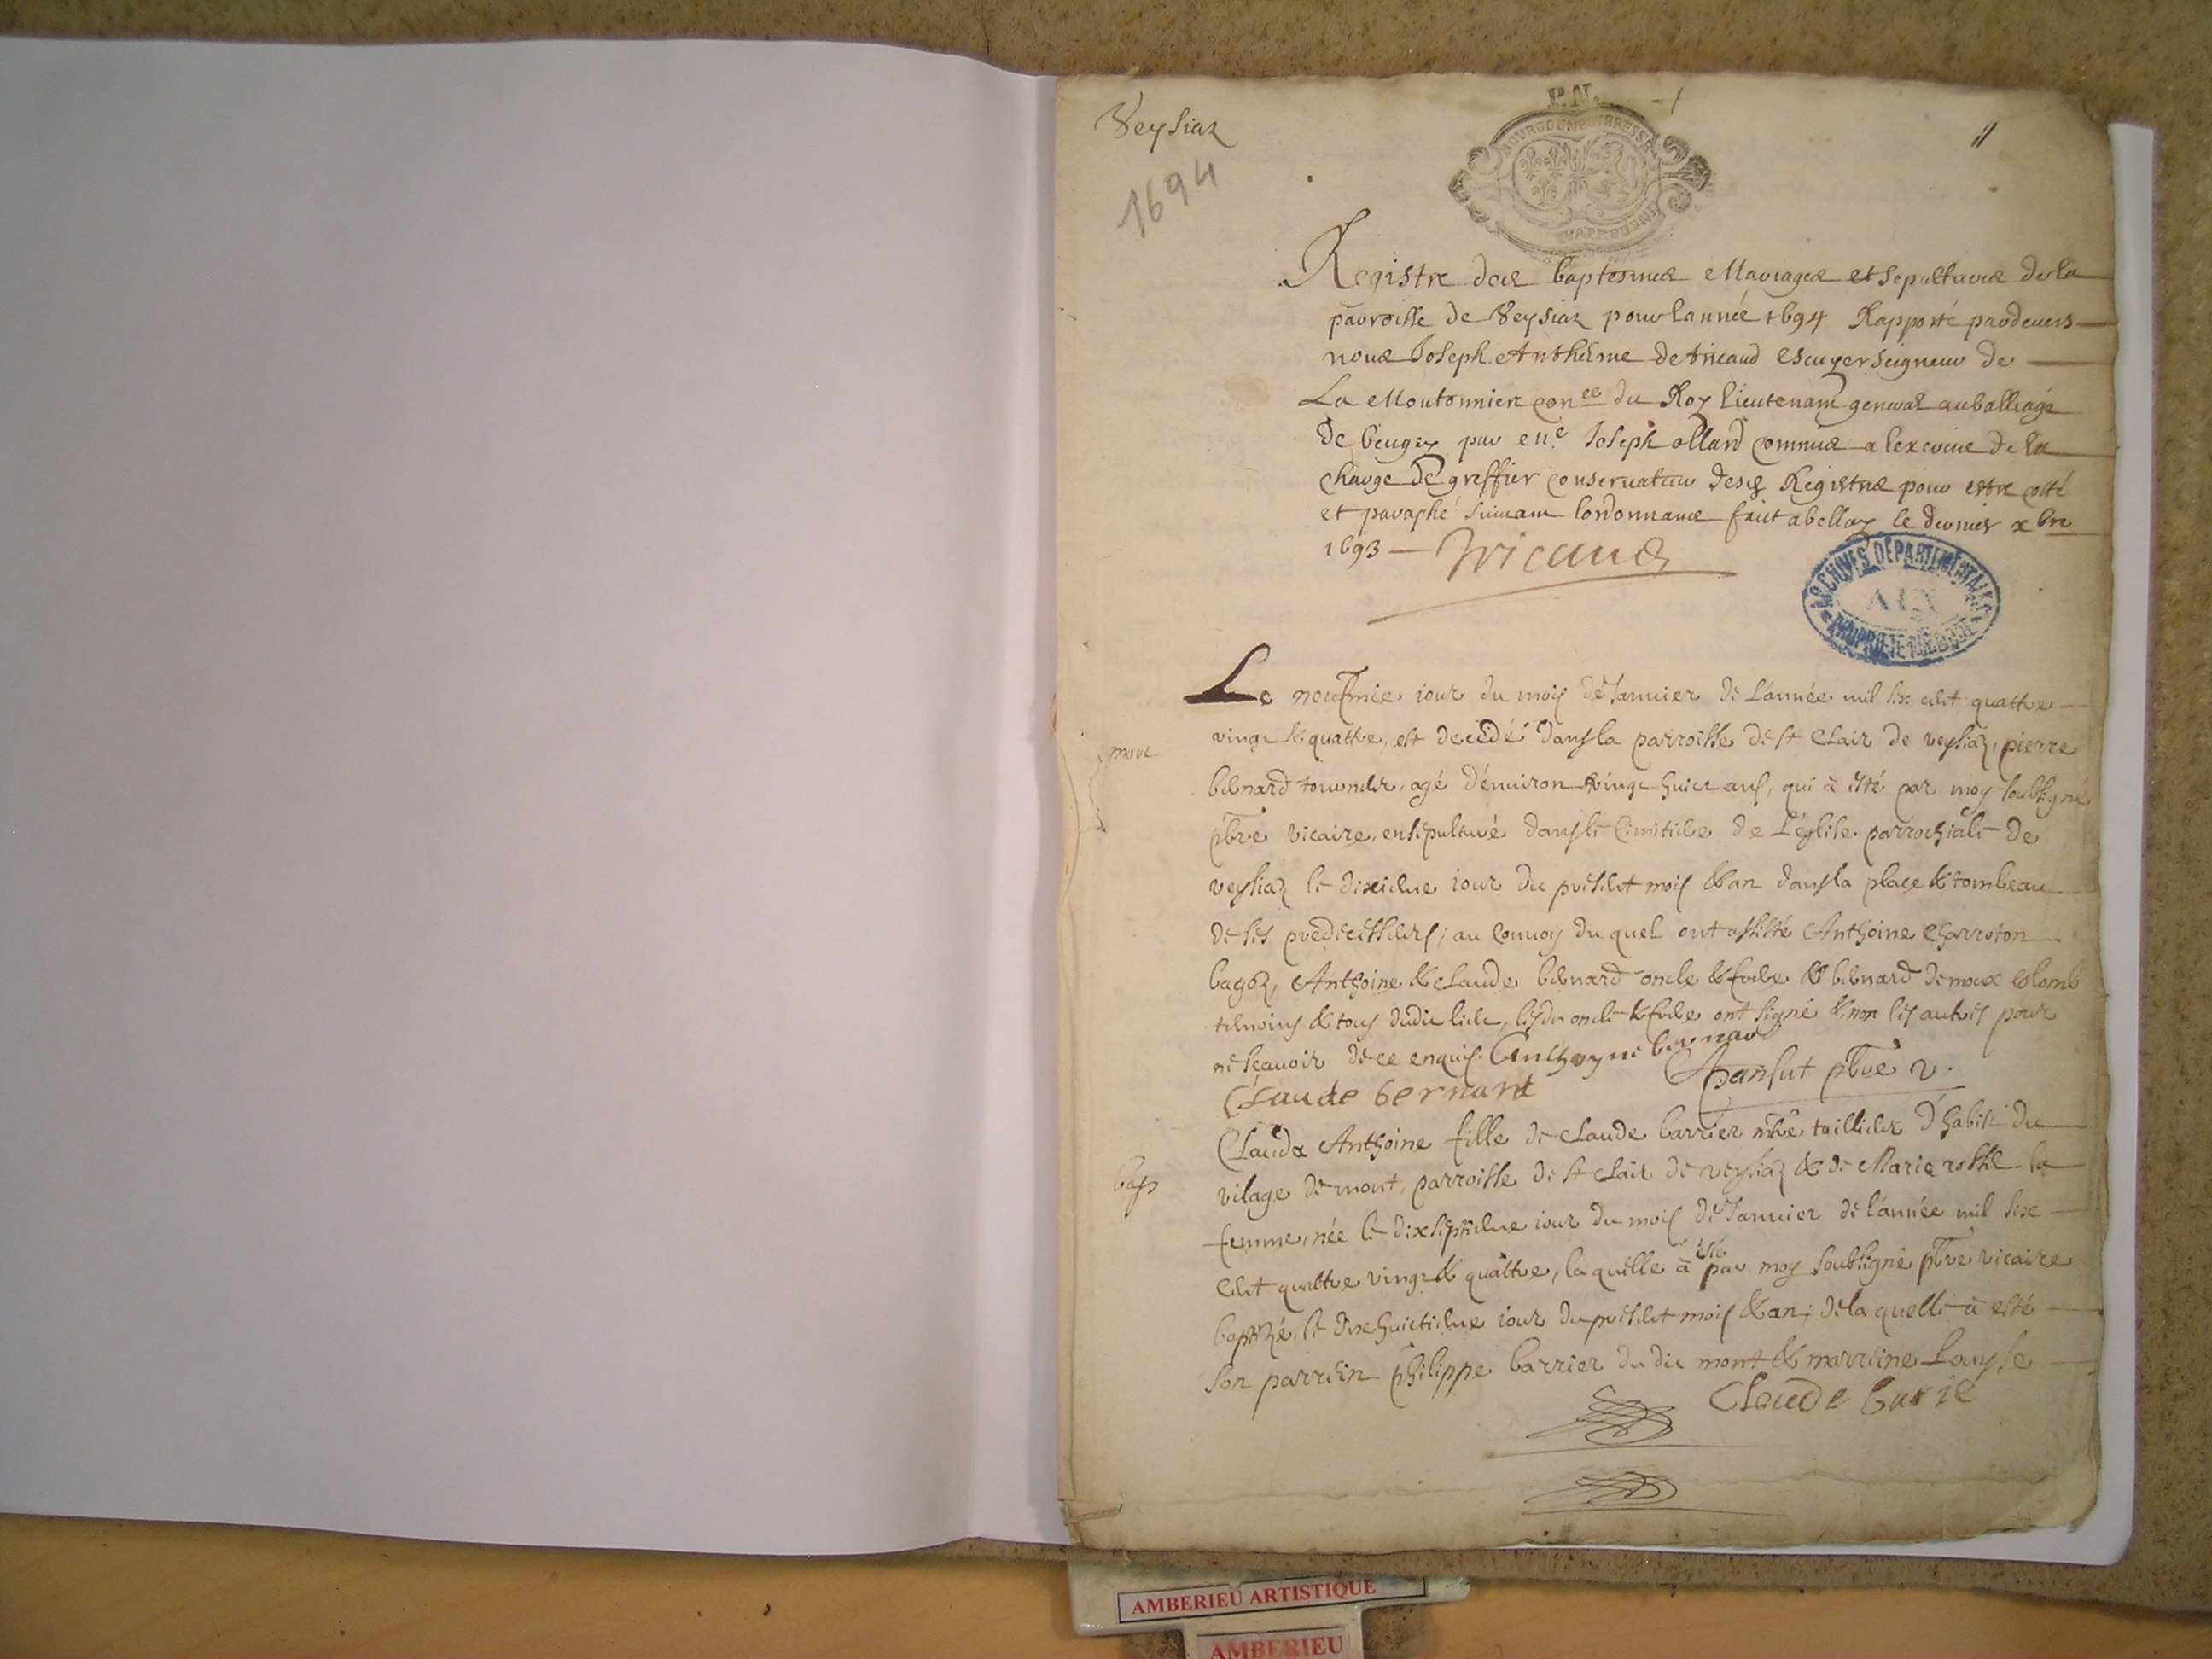 Veysiaz
1694
P.N.
BOURGOGNE BRESSE
Registre des baptesmes Mariages et sepultures de la
parroisse de Veysiaz pour lannée 1694 Rapporté pardevers
nous Joseph Anthelme de tricaud escuyer seigneur de
La Moutonniere con.er du Roy lieutenant general au balliage
de beugey par me Joseph allard commis a lexercice de la
charge de greffier conservateur desd Registres pour estre cotté
et paraphé suivant lordonnance fait a belley le dernier xbre
1693 Tricaud
ARCHIVES DEPARTEMENTALES
AIN
PROPRIETE PUBLIQUE
Le neufmie iour du mois de Januier de l'année mil six cent quattre
mort
vingt & quattre, est decedé dans la parroisse de st Clair de veysiaz, pierre
bernard agé d'enuiron vingt huict ans, qui à esté par moy soubsigné
pbre vicaire, ensepulturé dans le cimitiere de L'église parrochiale de
veysiaz le dixieme iour du present mois & an dans la place & tombeau
de ses predecesseurs; au conuoy du quel ont assisté Anthoine Charroton
Anthoine & claude bernard oncle & frere & bernard
tesmoins & tous dudit lieu, lesdits oncle & frere ont signé & non les autres pour
ne sçauoir de ce enquis. Anthoyne bernard
Claude bernard pansut pbre v.
Clauda Anthoine fille de claude barrier mtre tailleur d'habits du
bap
vilage de mont, parroisse de st Clair de veysiaz & de Marie rosset sa
femme, née le dixseptieme iour du mois de Januier de l'année mil six
cent quattre vingt & quattre, laquelle à esté par moy soubsigné pbre vicaire
baptizé, le dixhuictieme iour du present mois & an; de laquelle à esté
son parrein philippe barrier du dit mont & marreine Louyse
Claude barie
AMBERIEU ARTISTIQUE
AMBERIEU